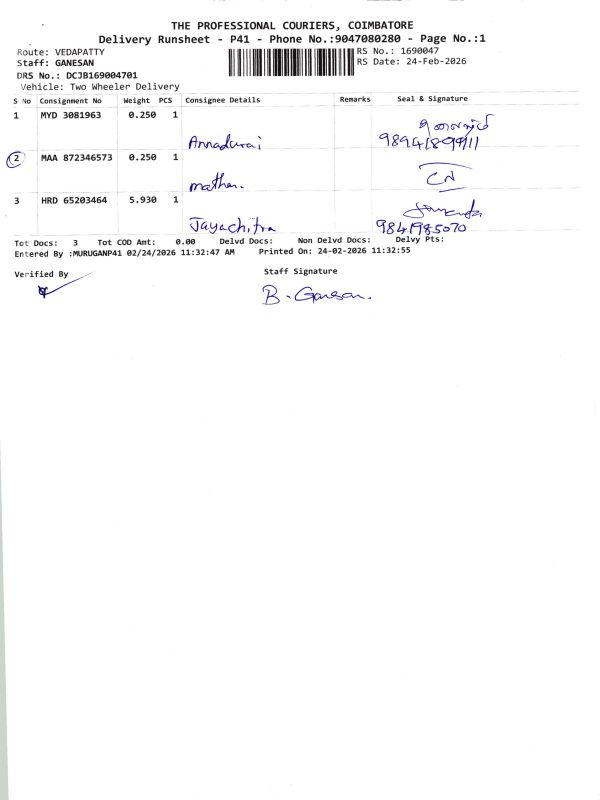 THE PROFESSIONAL COURIERS, COIMBATORE
Delivery Runsheet - P41 - Phone No.:9047080280 - Page No.:1
Route: VEDAPATTY
RS No.: 1690047
Staff: GANESAN
RS Date: 24-Feb-2026
DRS No.: DCJB169004701
Vehicle: Two Wheeler Delivery
S No Consignment No Weight PCS Consignee Details Remarks Seal & Signature
1 MYD 3081963 0.250 1
Annadurai
2 MAA 872346573 0.250 1
mathan. CN
3 HRD 65203464 5.930 1
Jayachitra 9841985070
Tot Docs: 3 Tot COD Amt: 0.00 Delvd Docs: Non Delvd Docs: Delvy Pts:
Entered By :MURUGANP41 02/24/2026 11:32:47 AM Printed On: 24-02-2026 11:32:55
Verified By
Staff Signature
B. Ganesan.